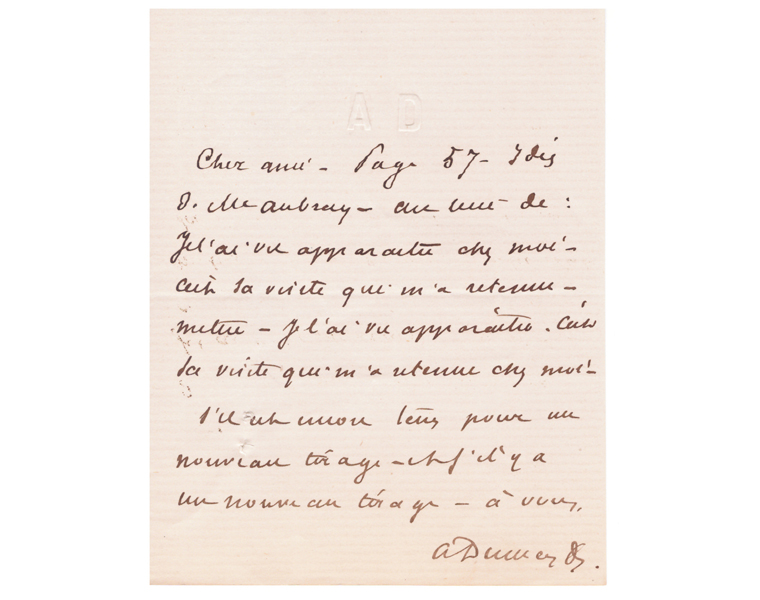 A D
Cher ami - Page 57 - Idées
d. Me aubray - au lieu de :
Je l'ai vu apparaitre chez moi -
c'est sa visite qui m'a retenu -
mettre - Je l'ai vu apparaître . C'est
sa visite qui m'a retenu chez moi -
S'il est encore temps pour un
nouveau tirage - et s'il y a
un nouveau tirage - à vous,
A Dumas fs.